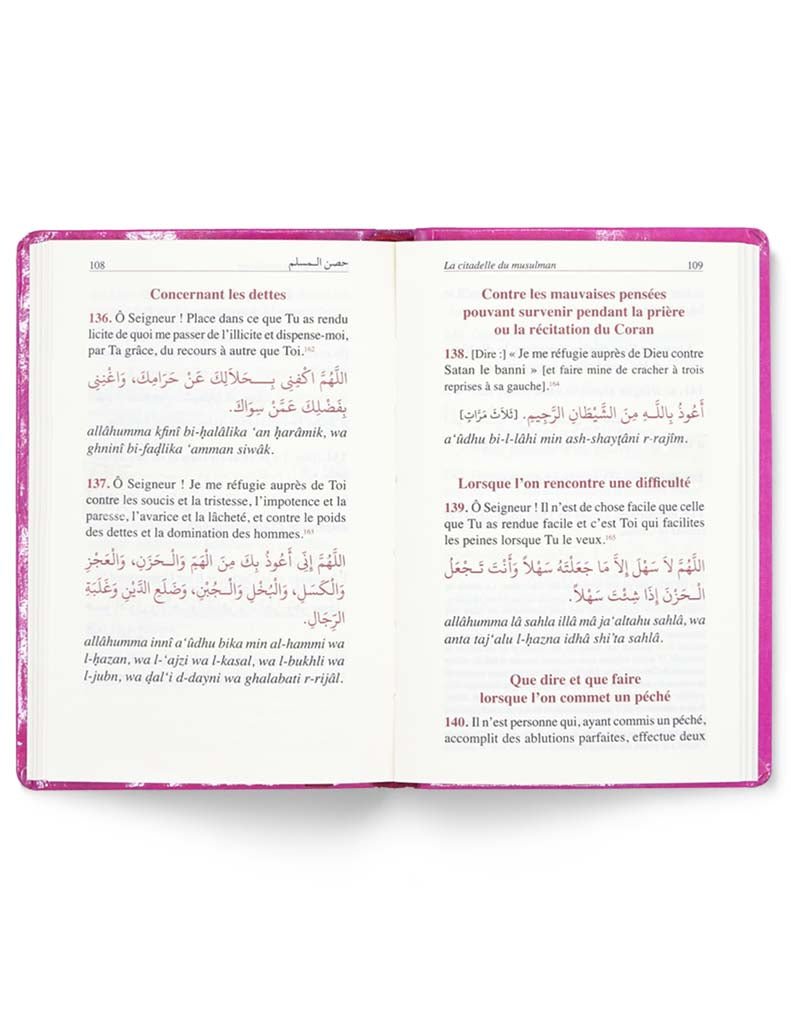 108
حصن الـمسلم
Concernant les dettes
136. Ô Seigneur ! Place dans ce que Tu as rendu
licite de quoi me passer de l’illicite et dispense-moi,
par Ta grâce, du recours à autre que Toi.162
اللَّهُمَّ اكْفِنِي بِـــحَلاَلِكَ عَنْ حَرَامِكَ، وَاغْنِنِي
بِفَضْلِكَ عَمَّنْ سِوَاكَ.
allâhumma kfinî bi-ḥalâlika ‘an ḥarâmik, wa
ghninî bi-faḍlika ‘amman siwâk.
137. Ô Seigneur ! Je me réfugie auprès de Toi
contre les soucis et la tristesse, l’impotence et la
paresse, l’avarice et la lâcheté, et contre le poids
des dettes et la domination des hommes.163
اللَّهُمَّ إِنِّى أَعُوذُ بِكَ مِنَ الْهَمِّ وَالْـحَزَنِ، وَالْعَجْزِ
وَالْكَسَلِ، وَالْبُخْلِ وَالْـجُبْنِ، وَضَلَعِ الدَّيْنِ وَغَلَبَةِ
الرِّجَالِ.
allâhumma innî a‘ûdhu bika min al-hammi wa
l-ḥazan, wa l-‘ajzi wa l-kasal, wa l-bukhli wa
l-jubn, wa ḍal‘i d-dayni wa ghalabati r-rijâl.
La citadelle du musulman
109
Contre les mauvaises pensées
pouvant survenir pendant la prière
ou la récitation du Coran
138. [Dire :] « Je me réfugie auprès de Dieu contre
Satan le banni » [et faire mine de cracher à trois
reprises à sa gauche].164
أَعُوذُ بِاللَّـهِ مِنَ الشَّيْطَانِ الرَّجِيمِ. [ثَلاَثَ مَرَّاتٍ]
a‘ûdhu bi-l-lâhi min ash-shayṭâni r-rajîm.
Lorsque l’on rencontre une difficulté
139. Ô Seigneur ! Il n’est de chose facile que celle
que Tu as rendue facile et c’est Toi qui facilites
les peines lorsque Tu le veux.165
اللَّهُمَّ لاَ سَهْلَ إِلاَّ مَا جَعَلْتَهُ سَهْلاً وَأَنْتَ تَـجْعَلُ
الْـحَزْنَ إِذَا شِئْتَ سَهْلاً.
allâhumma lâ sahla illâ mâ ja‘altahu sahlâ, wa
anta taj‘alu l-ḥazna idhâ shi’ta sahlâ.
Que dire et que faire
lorsque l’on commet un péché
140. Il n’est personne qui, ayant commis un péché,
accomplit des ablutions parfaites, effectue deux